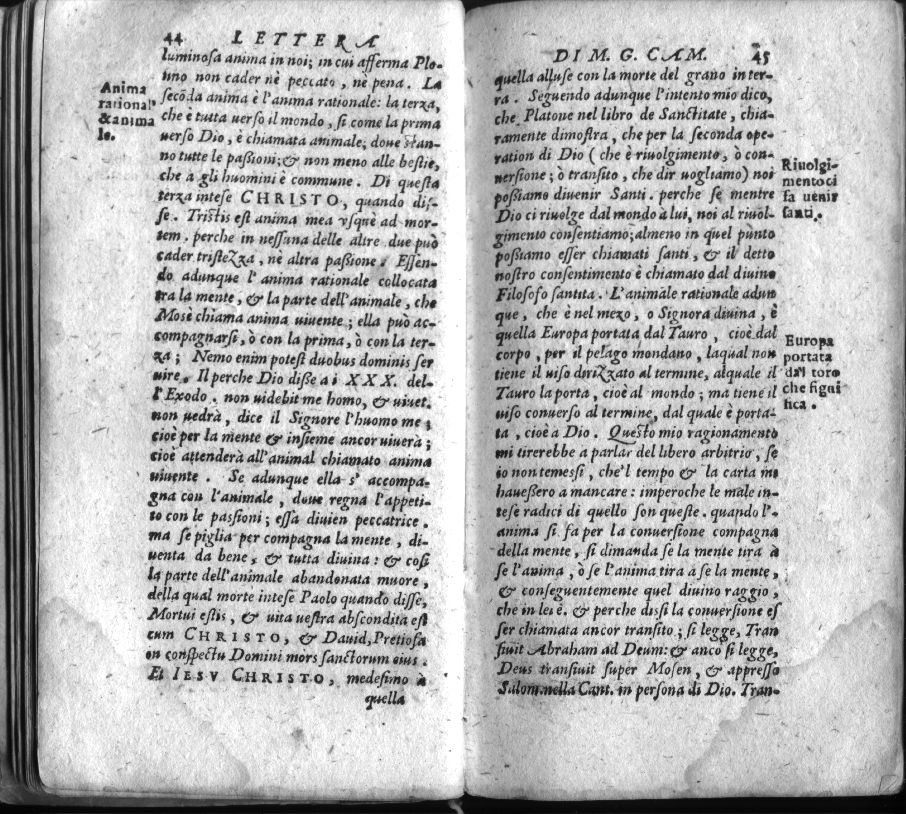 44 LETTERA
luminosa anima in noi; in cui afferma Plo-
tino non cader nè peccato, nè pena. La
secōda anima è l'anima rationale: la terza,
che è tutta uerso il mondo, si come la prima
uerso Dio, è chiamata animale; doue stan-
no tutte le passioni; & non meno alle bestie,
che a gli huomini è commune. Di questa
terza intese CHRISTO, quando dis-
se. Tristis est anima mea vsquè ad mor-
tem. perche in nessuna delle altre due può
cader tristezza, nè altra passione. Essen-
do adunque l'anima rationale collocata
tra la mente, & la parte dell'animale, che
Mosè chiama anima uiuente; ella può ac-
compagnarsi, ò con la prima, ò con la ter-
za; Nemo enim potest duobus dominis ser
uire. Il perche Dio disse a i XXX. del-
l'Exodo. non uidebit me homo, & uiuet.
non uedrà, dice il Signore l'huomo me;
cioè per la mente & insieme ancor uiuerà;
cioè attenderà all'animal chiamato anima
uiuente. Se adunque ella s'accompa-
gna con l'animale, doue regna l'appeti-
to con le passioni; essa diuien peccatrice.
ma se piglia per compagna la mente, di-
uenta da bene, & tutta diuina: & così
la parte dell'animale abandonata muore,
della qual morte intese Paolo quando disse,
Mortui estis, & uita uestra abscondita est
cum CHRISTO, & Dauid, Pretiosa
in conspectu Domini mors sanctorum eius.
Et IESV CHRISTO, medesimo à
quella
Anima
rational'
& anima
le.
DI M. G. CAM. 45
quella alluse con la morte del grano in ter-
ra. Seguendo adunque l'intento mio dico,
che Platone nel libro de Sanctitate, chia-
ramente dimostra, che per la seconda ope-
ration di Dio (che è riuolgimento, ò con-
uersione; ò transito, che dir uogliamo) noi
possiamo diuenir Santi. perche se mentre
Dio ci riuolge dal mondo à lui, noi al riuol-
gimento consentiamo; almeno in quel punto
possiamo esser chiamati santi, & il detto
nostro consentimento è chiamato dal diuino
Filosofo santita. L'animale rationale adun
que, che è nel mezo, o Signora diuina, è
quella Europa portata dal Tauro, cioè dal
corpo, per il pelago mondano, laqual non
tiene il uiso derizzato al termine, alquale il
Tauro la porta, cioè al mondo; ma tiene il
uiso conuerso al termine, dal quale è porta-
ta, cioè a Dio. Questo mio ragionamento
mi tirerebbe a parlar del libero arbitrio, se
io non temessi, che'l tempo & la carta mi
hauessero a mancare: imperoche le male in-
tese radici di quello son queste. quando l'-
anima si fa per la conuersione compagna
della mente, si dimanda se la mente tira à
se l'anima, ò se l'anima tira à se la mente,
& conseguentemente quel diuino raggio,
che in lei è. & perche dissi la conuersione es
ser chiamata ancor transito; si legge, Tran
siuit Abraham ad Deum: & anco si legge,
Deus transiuit super Mosen, & appresso
Salom. nella Cant. in persona di Dio. Tran-
Riuolgi-
mento ci
fa uenir
santi.
Europa
portata
dal toro
che signi
fica.